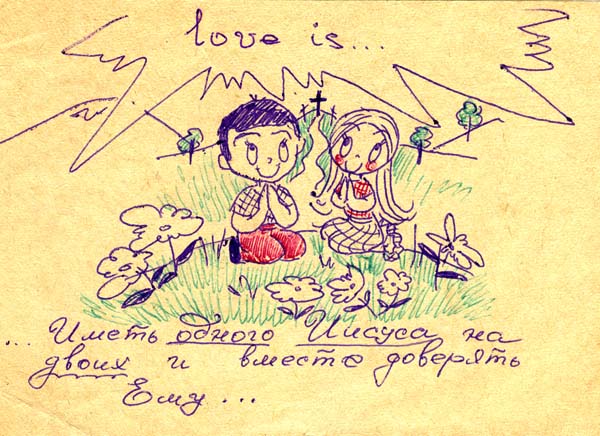 love is...
... Иметь одного Иисуса на
двоих и вместе доверять
Ему...